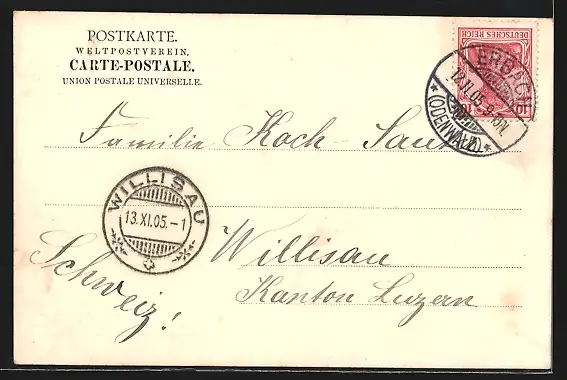 POSTKARTE.
WELTPOSTVEREIN.
CARTE-POSTALE.
UNION POSTALE UNIVERSELLE.
DEUTSCHES REICH
10 10
ERBACH
12.XI.05.9-10N.
* (ODENWALD) *
Familie Koch-
WILLISAU
13.XI.05.-1
Willisau
Kanton Luzern
Schweiz!